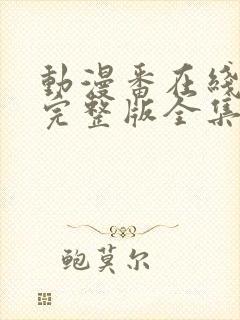 動漫番在线
完整版全集
鲍莫尔